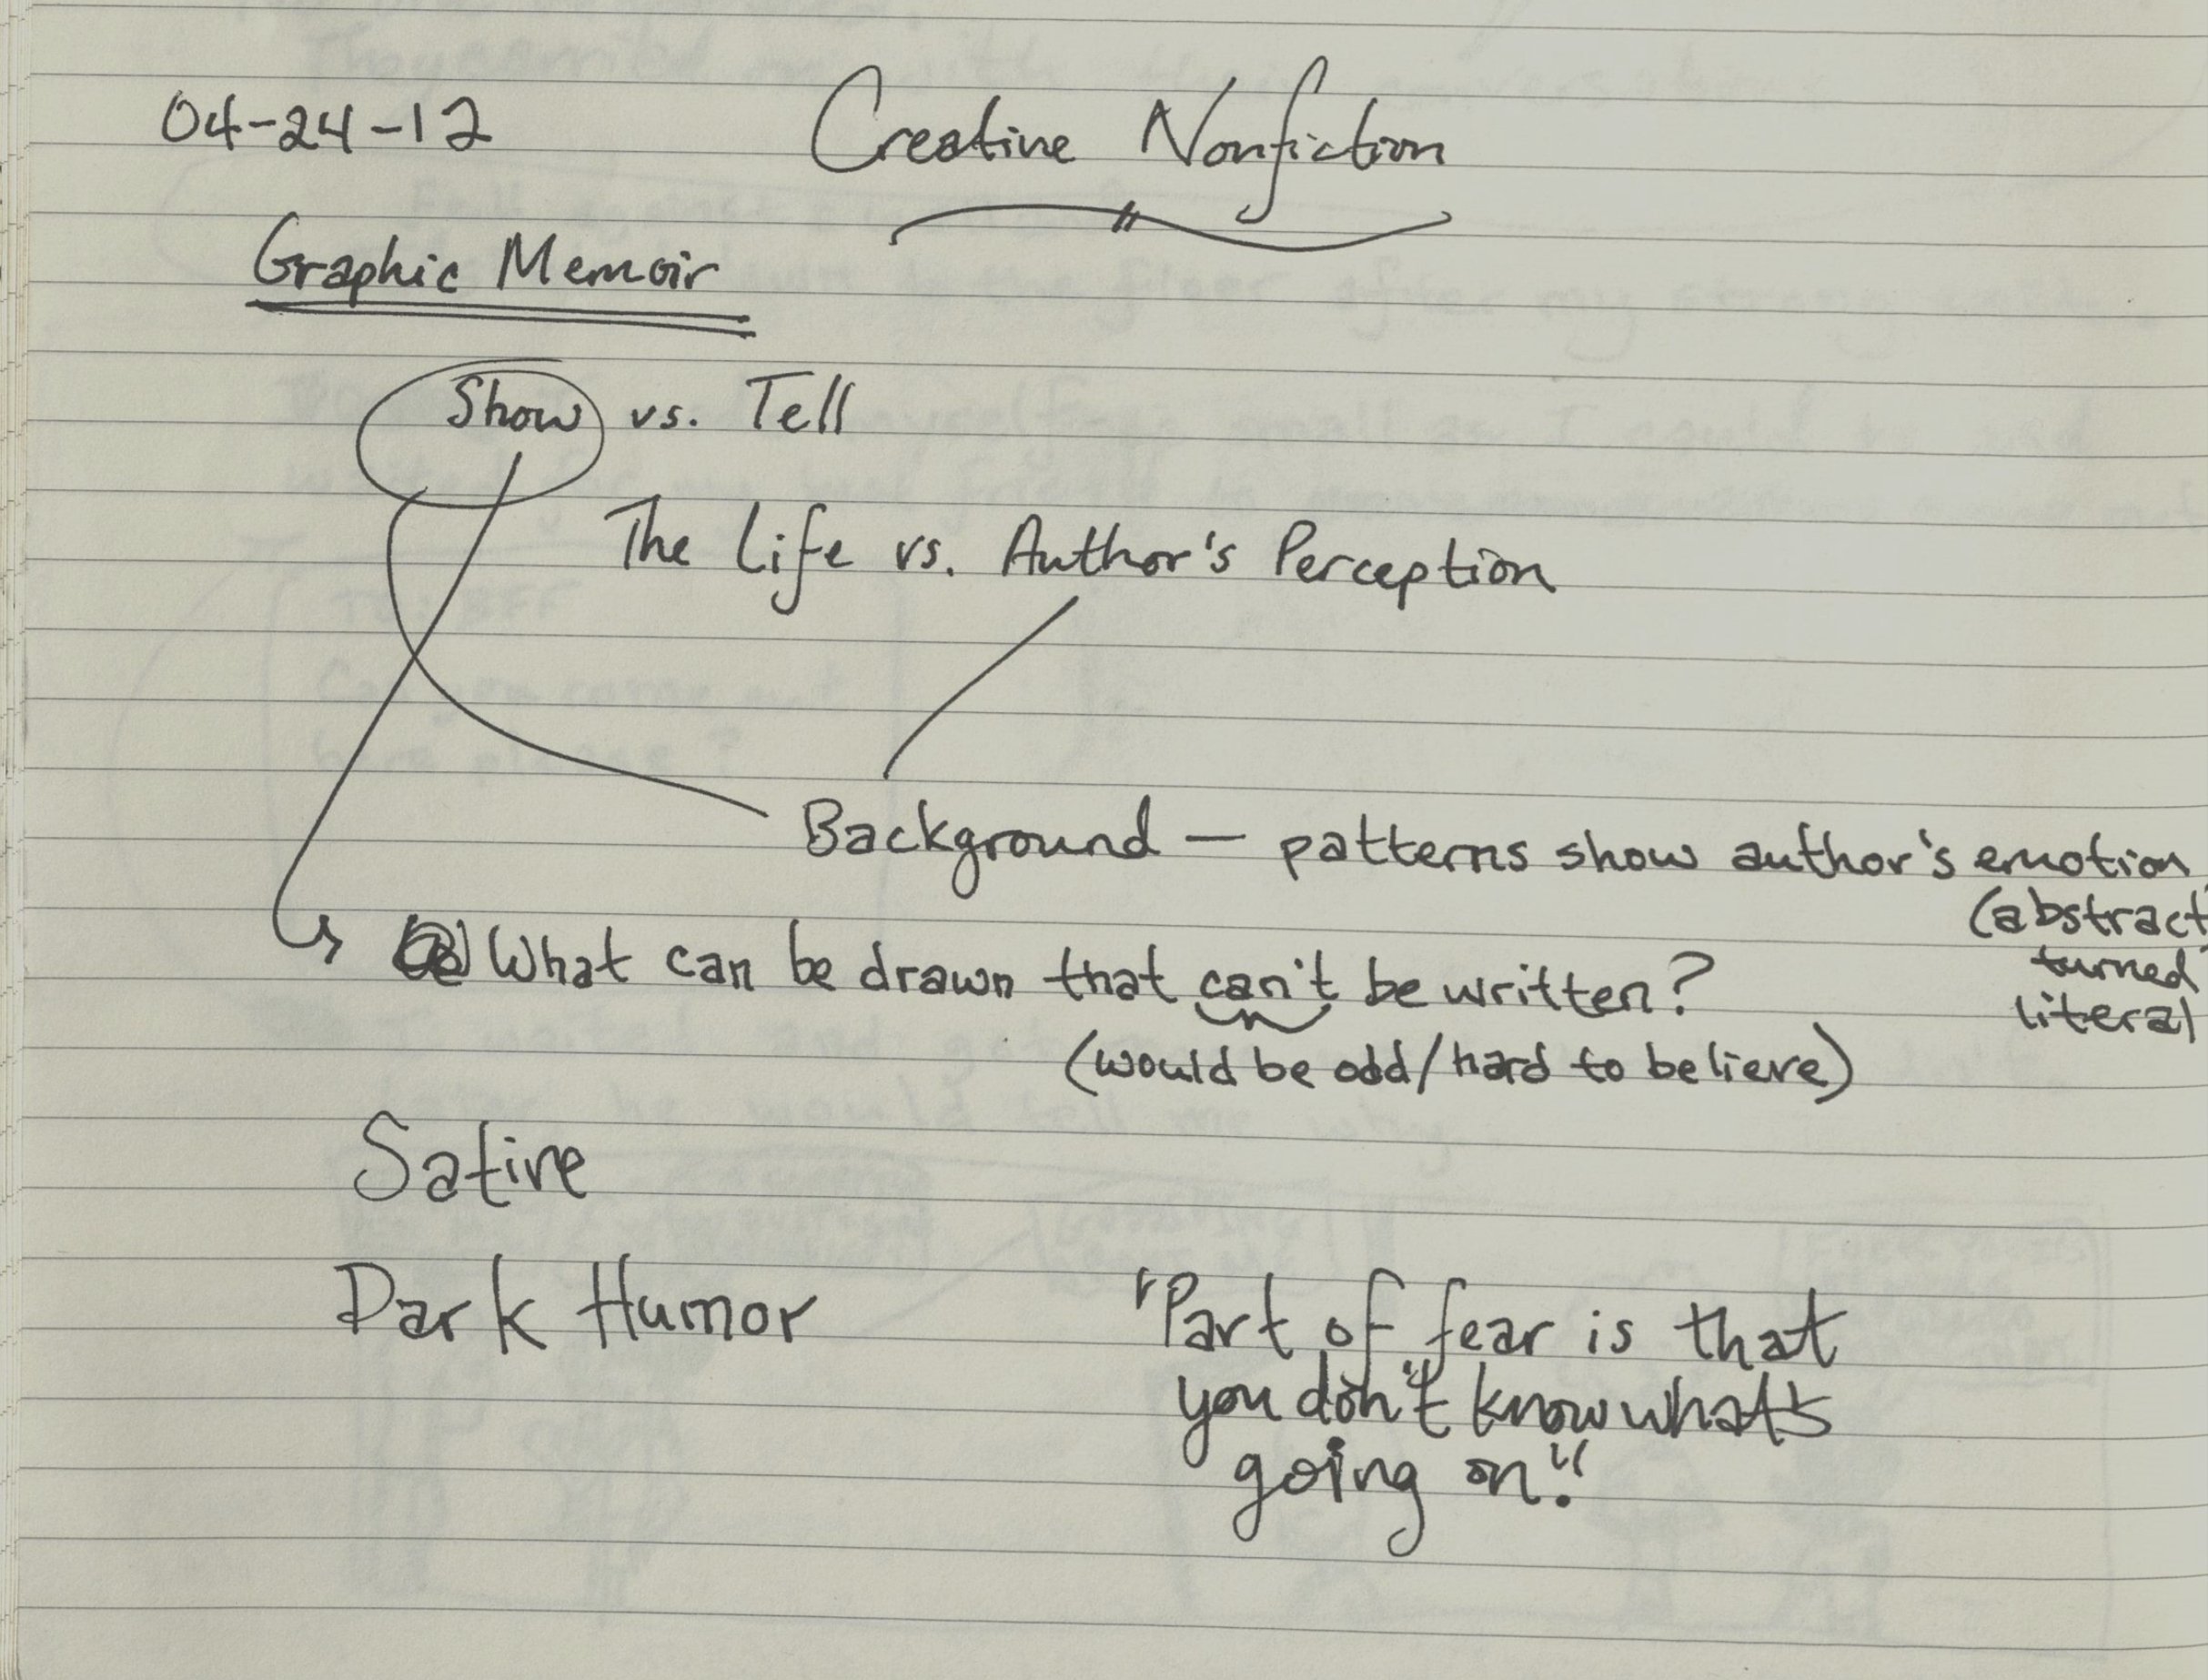 04-24-12
Creative Nonfiction
Graphic Memoir
Show vs. Tell
The Life vs. Author's Perception
Background — patterns show author's emotion
(abstract
turned
literal
What can be drawn that can't be written?
(would be odd/hard to believe)
Satire
Dark Humor
"Part of fear is that
you don't know what's
going on."